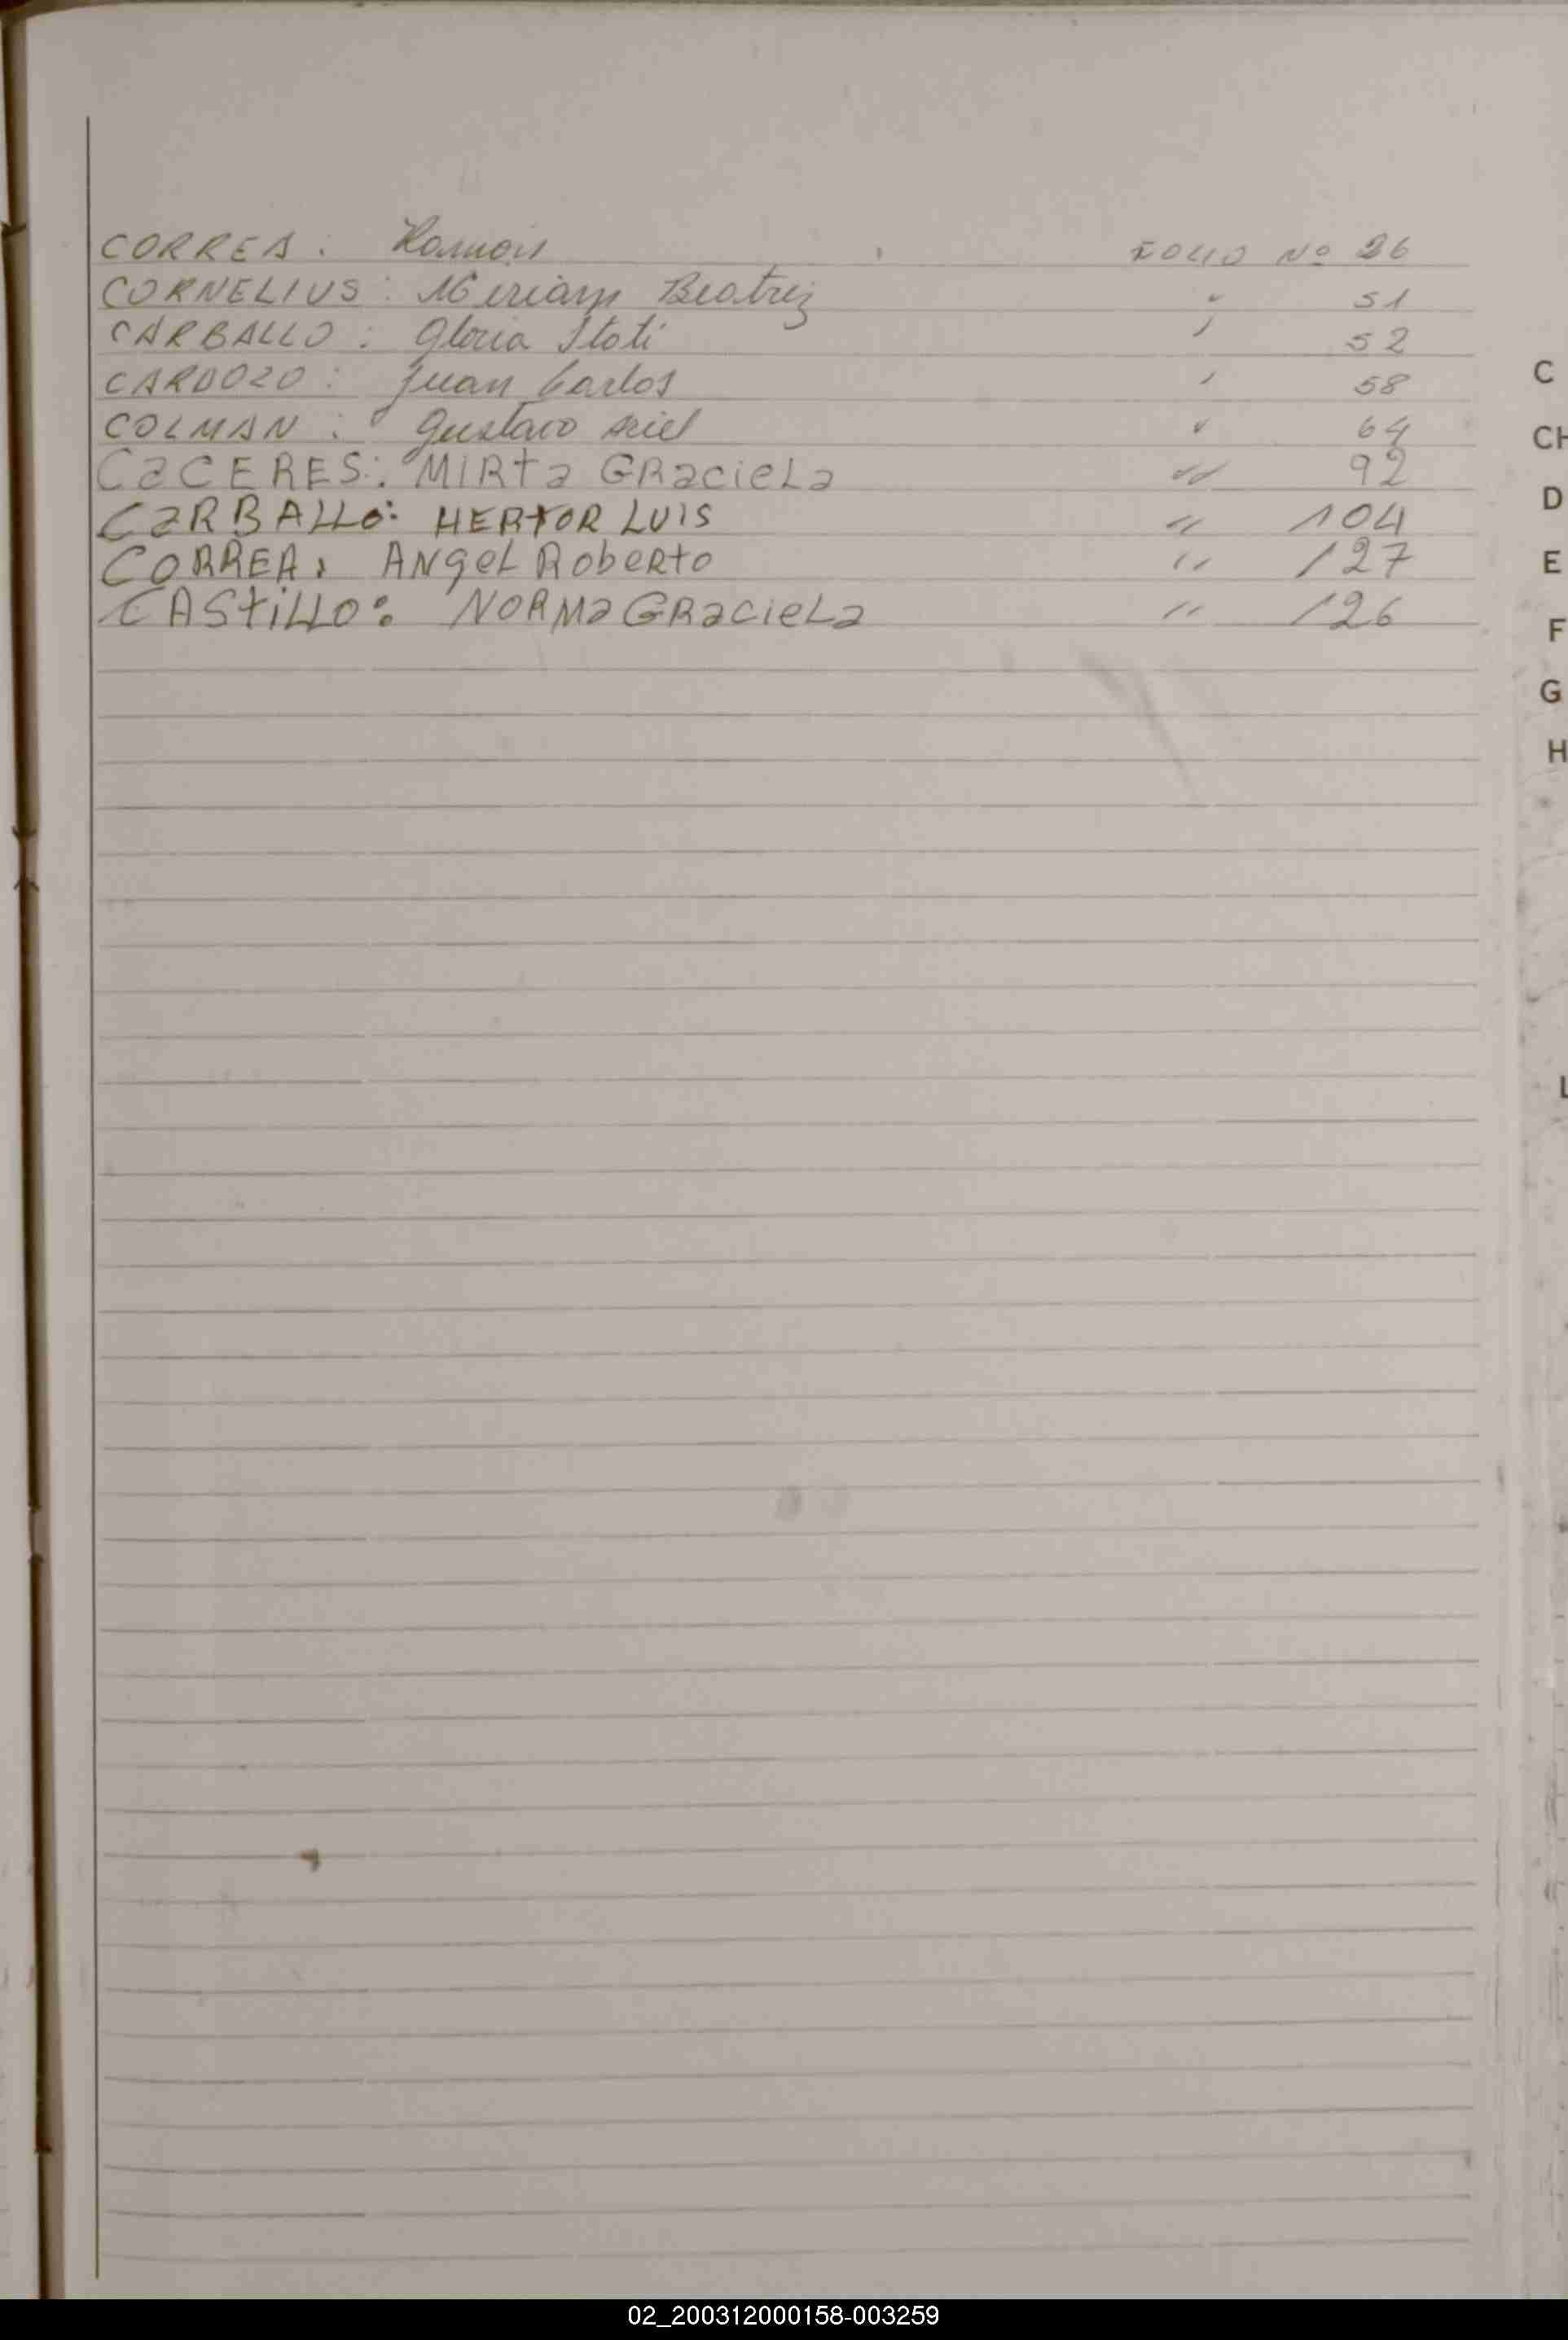 CORREA: Ramon FOLIO Nº 26
CORNELIUS: Miriam Beatriz " 51
CARBALLO: Gloria Itati " 52
CARDOZO: Juan Carlos " 58
COLMAN: Gustavo Ariel " 64
CaCERES: MIRta GRacieLa " 92
CaRBALLO: HERTOR LUIS " 104
CORREA: ANgeL RobeRto " 127
CAStiLLO: NORMa GRacieLa " 126
C
CH
D
E
F
G
H
L
02_200312000158-003259